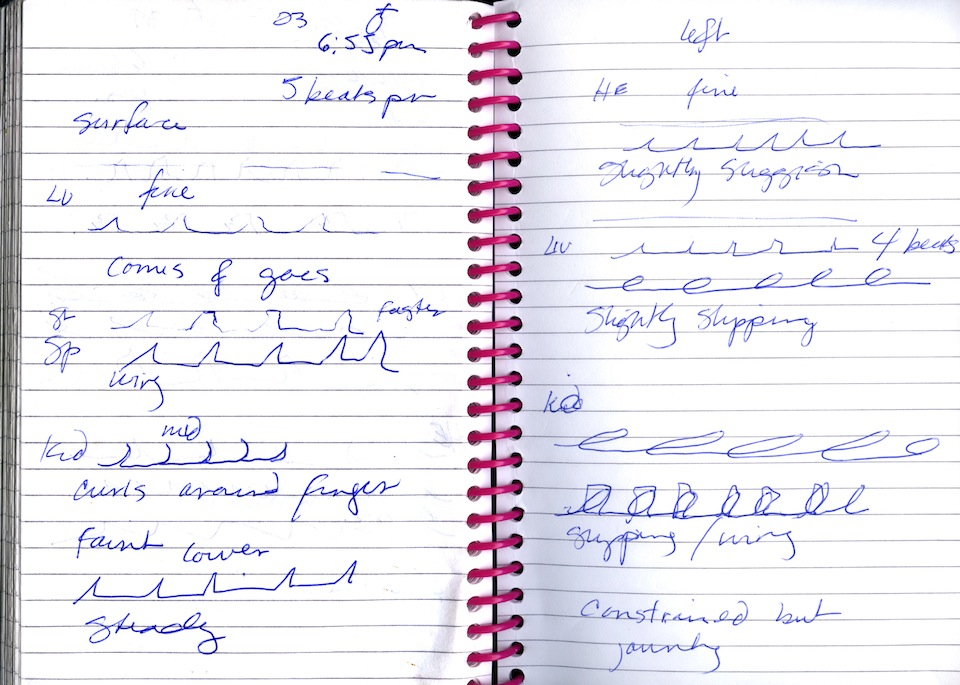 6:55 pm
5 beats pr
Surface
LU fine
Comes & goes
St faster
Sp
wiry
mid
Kid
curls around finger
faint lower
steady
left
HE fine
Slightly Sluggish
LIV 4 beats
Slightly Slipping
Kid
Slipping / wiry
Constrained but
jaunty